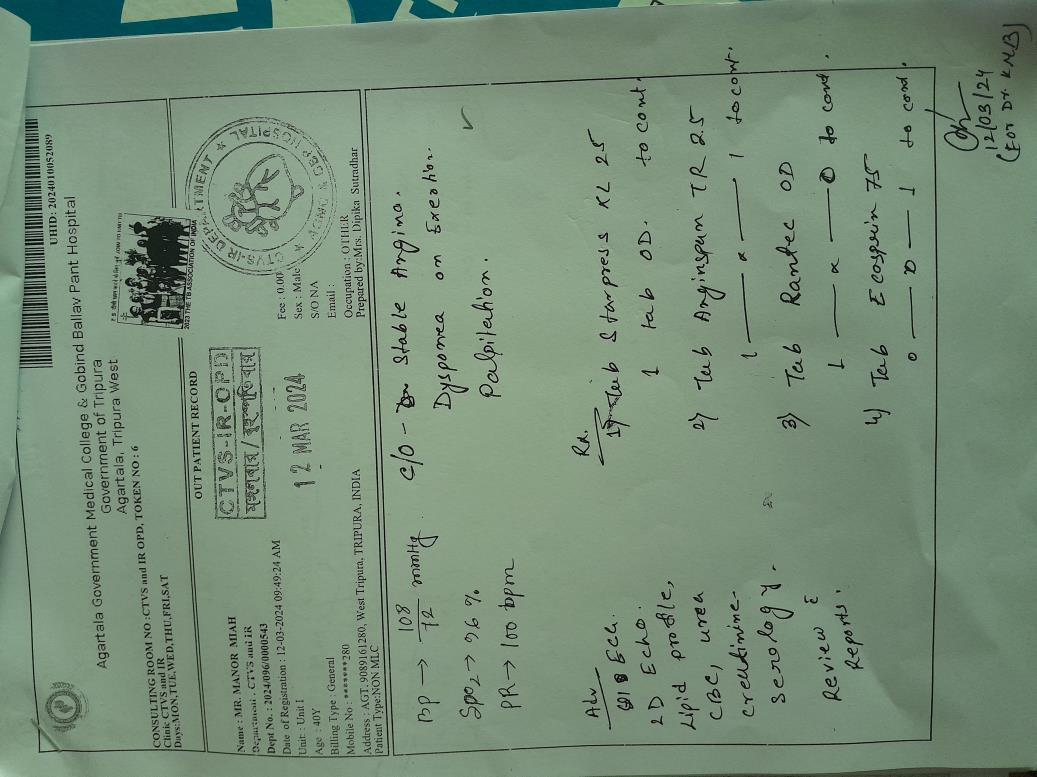 UHID: 2024010052089
Agartala Government Medical College & Gobind Ballav Pant Hospital
Government of Tripura
Agartala, Tripura West
CONSULTING ROOM NO :CTVS and IR OPD, TOKEN NO : 6
Clinic CTVS and IR
Days:MON,TUE,WED,THU,FRI,SAT
2023 THE TB ASSOCIATION OF INDIA
OUT PATIENT RECORD
CTVS-IR-OPD
মঙ্গলবার / বৃহস্পতিবার
CTVS-IR DEPARTMENT
AGMC & GBP HOSPITAL
Name : MR. MANOR MIAH
Department : CTVS and IR
Dept No. : 2024/096/0000543
Date of Registration : 12-03-2024 09:49:24 AM
12 MAR 2024
Unit : Unit I
Age : 40Y
Billing Type : General
Mobile No : *******280
Address : AGT. 9089161280, West Tripura, TRIPURA, INDIA
Patient Type:NON MLC
Fee : 0.00
Sex : Male
S/O NA
Email :
Occupation : OTHER
Prepared by:Mrs. Dipika Sutradhar
BP → 108/72 mmHg
SPO2 → 96 %
PR → 100 bpm
C/O - Stable Angina.
Dyspnoea on Exertion.
Palpitation.
Adv
ECG.
2D Echo.
Lipid profile,
CBC, urea
Creatinine.
Serology.
Review c̄
Reports.
Rx.
1) Tab Starpress XL 25
1 tab OD. to cont.
2) Tab Anginspan TR 2.5
1 — x — 1 to cont.
3) Tab Rantec OD
1 — x — 0 to cont.
4) Tab Ecosprin 75
0 — 0 — 1 to cont.
12/03/24
(FOR Dr. KNB)